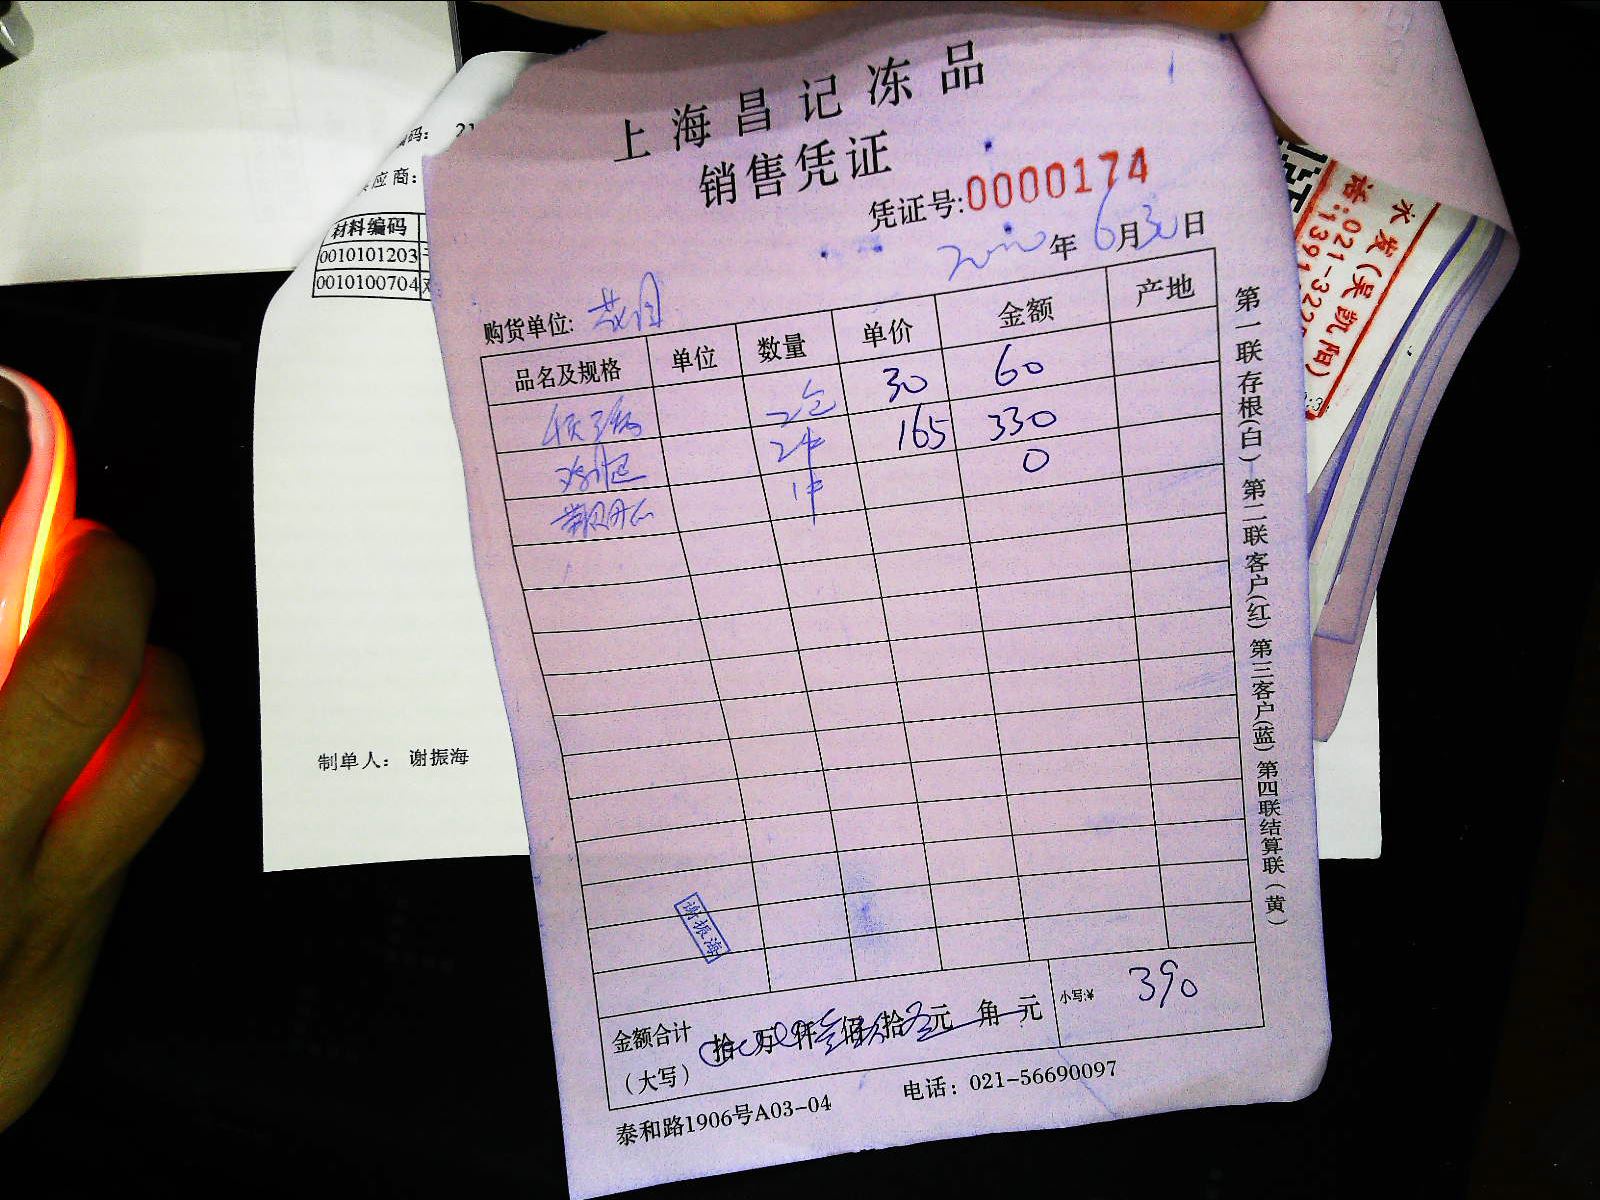 上海昌记冻品
销售凭证
凭证号:0000174
年6月 日
购货单位:
品名及规格 单位 数量 单价 金额 产地
2包 30 60
2件 165 330
1件 0
谢振海
金额合计
(大写) 拾 万 仟 佰 拾 元 角 元 小写:¥ 390
泰和路1906号A03-04 电话：021-56690097
第一联存根(白) 第二联客户(红) 第三客户(蓝) 第四联结算联(黄)
编码： 21
应商：
材料编码
0010101203
0010100704
制单人： 谢振海
水发(吴凯阳)
话:021-322
:1391